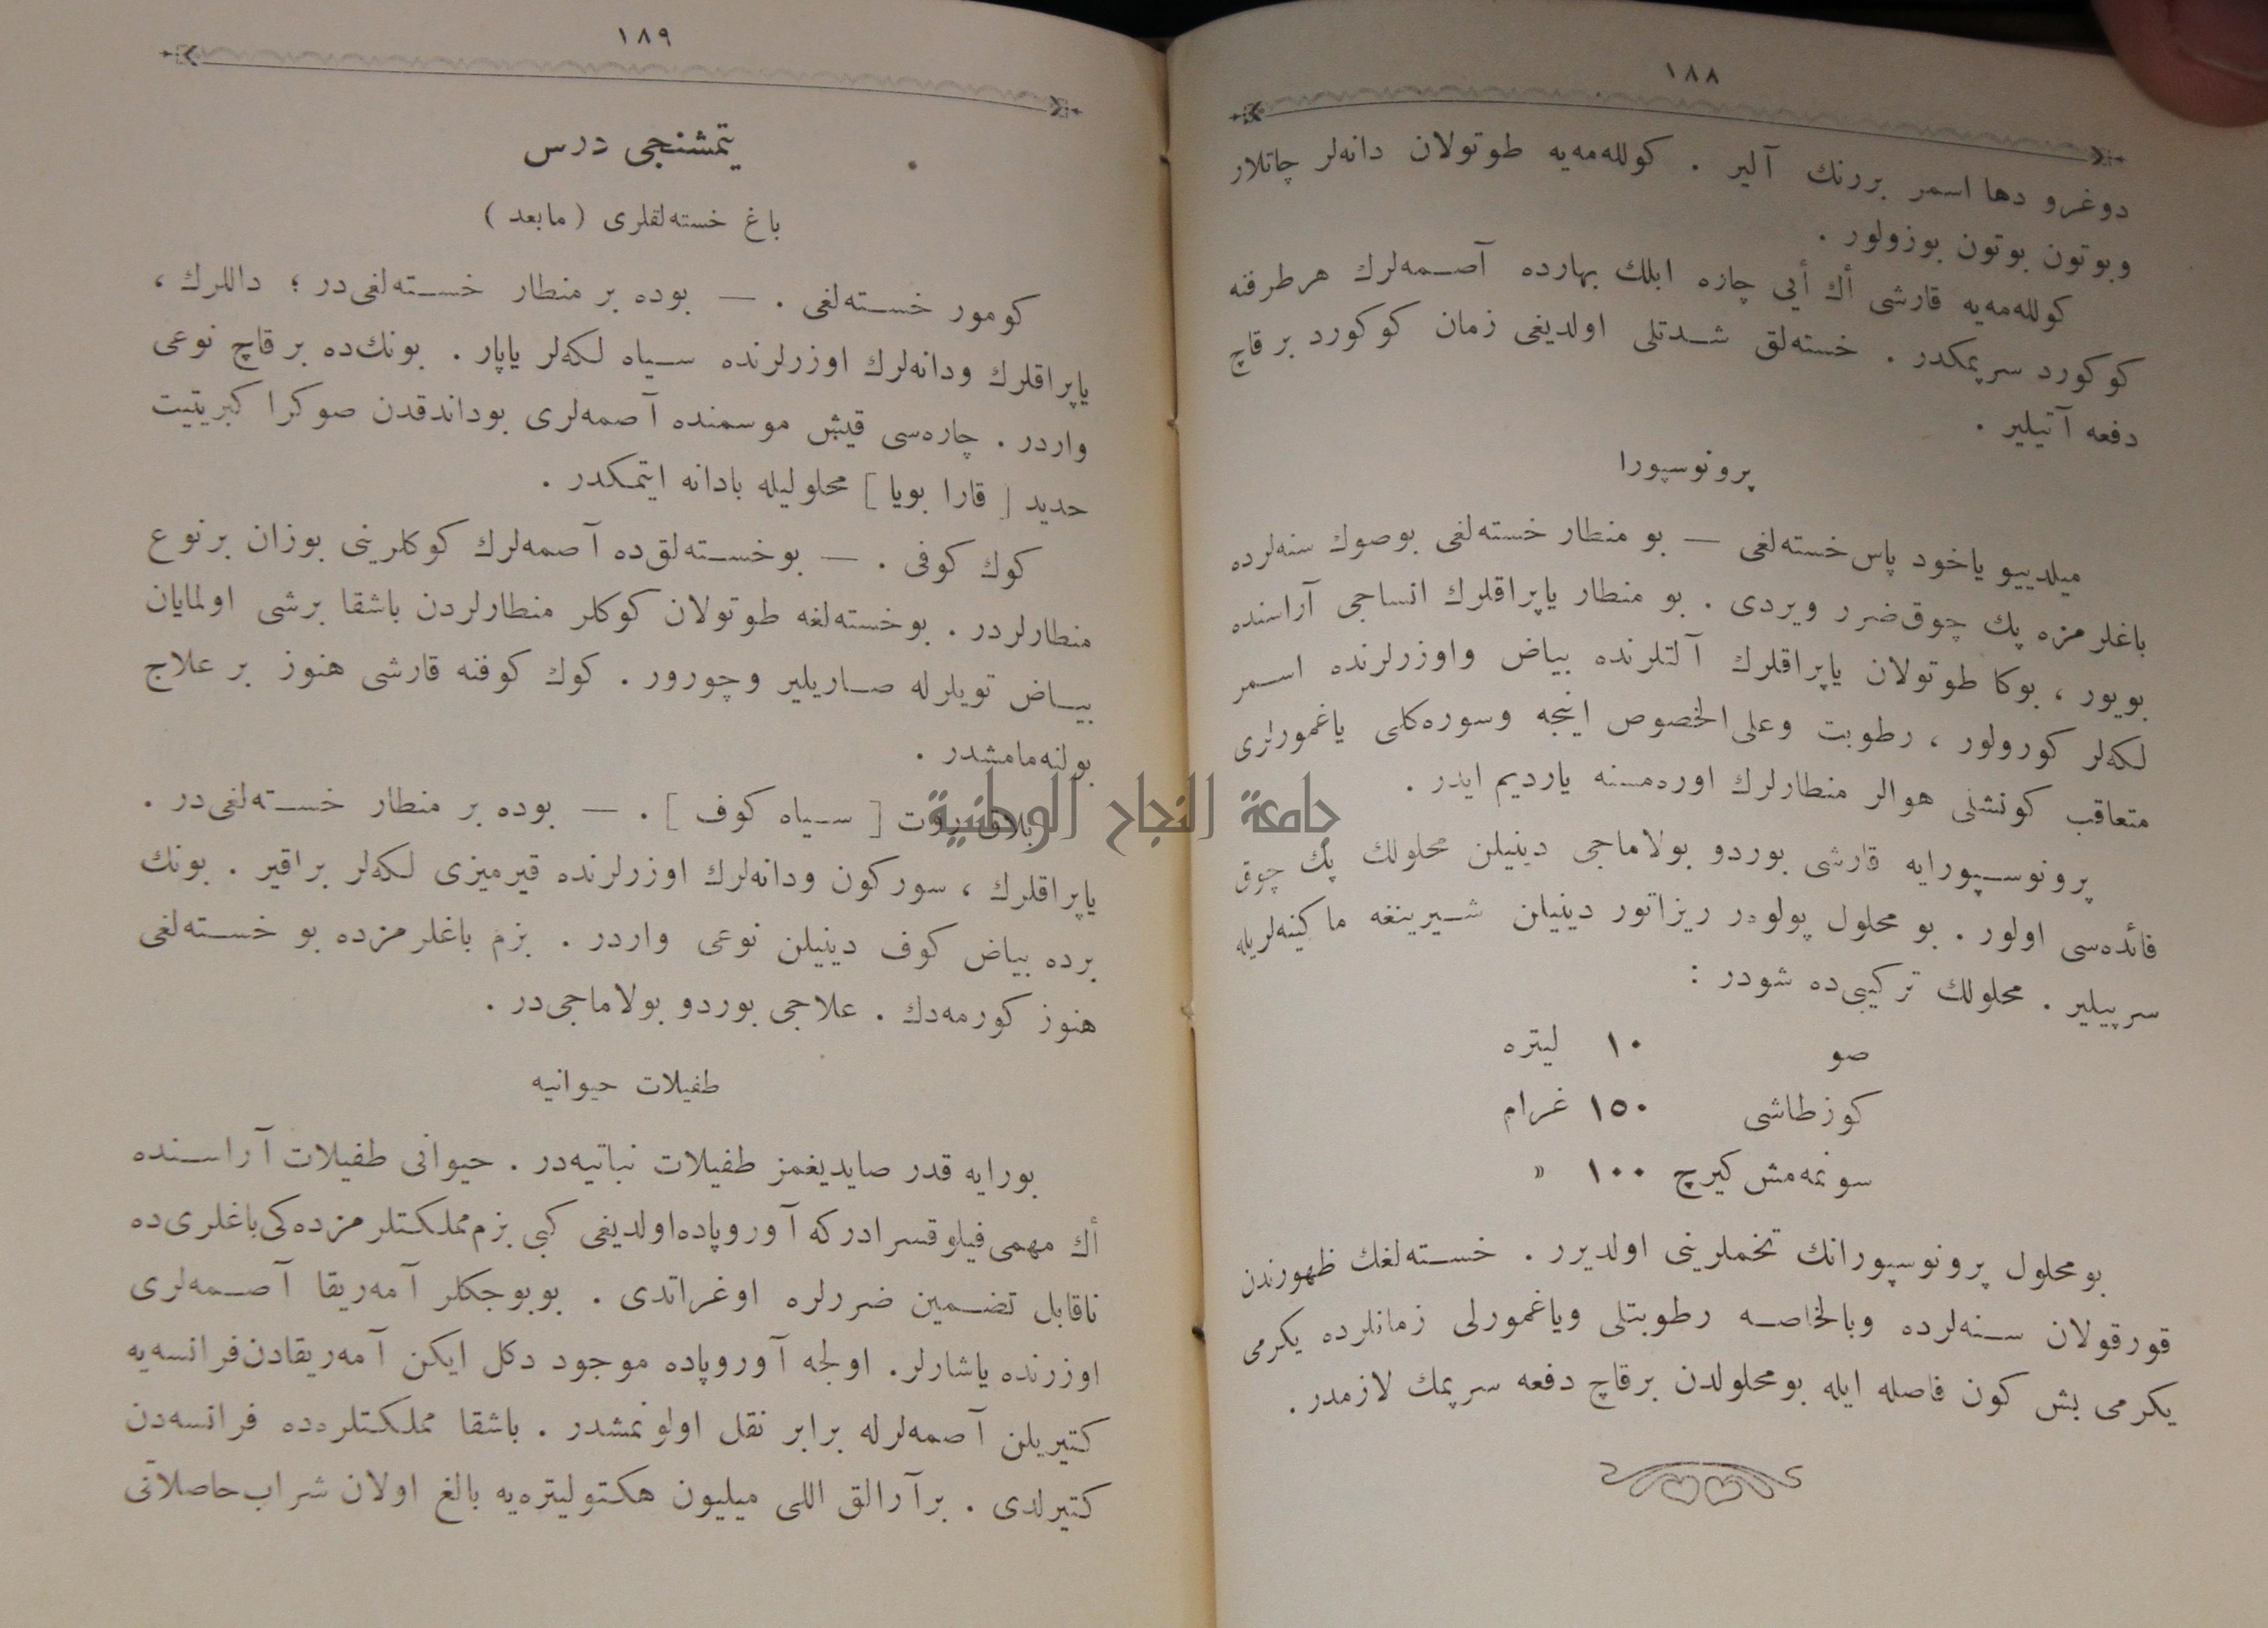 ١٨٨
دوغرو دها اسمر بررنك آلیر . كولله‌مه‌یه طوتولان دانه‌لر چاتلار
وبوتون بوتون بوزولور .
كولله‌مه‌یه قارشی أك أیی چاره ایلك بهارده آصمه‌لرك هرطرفنه
كوكورد سرپمكدر . خسته‌لق شدتلی اولدیغی زمان كوكورد برقاچ
دفعه آتیلیر .
پرونوسپورا
میلدییو یاخود پاس خسته‌لغی — بو منطار خسته‌لغی بوصوك سنه‌لرده
باغلرمزه پك چوق ضرر ویردی . بو منطار یاپراقلرك انساجی آراسنده
بویور ، بوكا طوتولان یاپراقلرك آلتلرنده بیاض واوزرلرنده اسمر
لكه‌لر كورولور ، رطوبت وعلی‌الخصوص اینجه وسوره‌كلی یاغمورلری
متعاقب كونشلی هوالر منطارلرك اوره‌مسنه یاردیم ایدر .
پرونوسپورایه قارشی بوردو بولاماجی دینیلن محلولك پك چوق
فائده‌سی اولور . بو محلول پولوه‌ر ریزاتور دینیلن شیرینغه ماكینه‌لریله
سرپیلیر . محلولك تركیبی‌ده شودر :
صو ١٠ لیتره
كوزطاشی ١٥٠ غرام
سونمه‌مش كیرچ ١٠٠ »
بومحلول پرونوسپورانك تخملرینی اولدیرر . خسته‌لغك ظهورندن
قورقولان سنه‌لرده وبالخاصه رطوبتلی ویاغمورلی زمانلرده یكرمی
یكرمی بش كون فاصله ایله بومحلولدن برقاچ دفعه سرپمك لازمدر .
١٨٩
یتمشنجی درس
باغ خسته‌لقلری (مابعد)
كومور خسته‌لغی . — بوده بر منطار خسته‌لغی‌در ؛ داللرك ،
یاپراقلرك ودانه‌لرك اوزرلرنده سیاه لكه‌لر یاپار . بونك‌ده برقاچ نوعی
واردر . چاره‌سی قیش موسمنده آصمه‌لری بوداندقدن صوكرا كبریتیت
حدید [ قارا بویا ] محلولیله بادانه ایتمكدر .
كوك كوفی . — بوخسته‌لق‌ده آصمه‌لرك كوكلرینی بوزان برنوع
منطارلردر . بوخسته‌لغه طوتولان كوكلر منطارلردن باشقا برشی اولمایان
بیاض تویلرله صاریلیر وچورور . كوك كوفنه قارشی هنوز بر علاج
بولنه‌مامشدر .
بلاق روت [ سیاه كوف ] . — بوده بر منطار خسته‌لغی‌در .
یاپراقلرك ، سوركون ودانه‌لرك اوزرلرنده قیرمیزی لكه‌لر براقیر . بونك
برده بیاض كوف دینیلن نوعی واردر . بزم باغلرمزده بو خسته‌لغی
هنوز كورمه‌دك . علاجی بوردو بولاماجی‌در .
طفیلات حیوانیه
بورایه قدر صایدیغمز طفیلات نباتیه‌در . حیوانی طفیلات آراسنده
أك مهمی فیلوقسرادركه آوروپاده اولدیغی كبی بزم مملكتلرمزده‌كی باغلری‌ده
ناقابل تضمین ضررلره اوغراتدی . بوبوجكلر آمه‌ریقا آصمه‌لری
اوزرنده یاشارلر. اولجه آوروپاده موجود دكل ایكن آمه‌ریقادن فرانسه‌یه
كتیریلن آصمه‌لرله برابر نقل اولونمشدر . باشقا مملكتلره‌ده فرانسه‌دن
كتیرلدی . برآرالق اللی میلیون هكتولیتره‌یه بالغ اولان شراب حاصلاتی
جامعة النجاح الوطنية